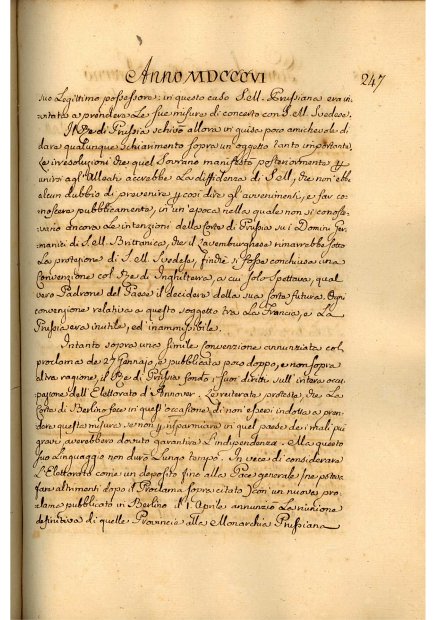 Anno MDCCCVI
247
suo Legittimo possessore; in questo caso S. M. Prussiana era in-
vitata a prendere Le sue misure di concerto con S. M. Svedese.
Il Re di Prussia schivò allora in guisa poco amichevole di
dare qualunque schiarimento sopra un' oggetto tanto importante.
Le irresoluzioni che quel Sovrano manifestò posteriormente p
unirsi agl' Alleati accrebbe La diffidenza di S. M, che non ebbe
alcun dubbio di prevenire p così dire gli avvenimenti, e far co-
noscere pubblicamente, in un' epoca nella quale non si conosce-
vano ancora Le intenzioni della Corte di Prussia su i Domini Ger-
manici di S. M. Britanica, che il Lavemburghese rimarrebbe sotto
La protezione di S. M. Svedese, finchè si fosse conchiusa una
Convenzione col Re de Inghilterra, a cui solo spettava, qual
vero Padrone del Paese il decidere della sua sorte futura. Ogni
convenzione relativa a questo soggetto tra La Francia, e La
Prussia era inutile, ed inammissibile.
Intanto sopra una simile convenzione annunziata col
proclama de 27 Gennajo, e pubblicata poco doppo, e non sopra
altra ragione, il Re di Prussia fondò i suoi diritti sull' intera occu-
pazione dell' Elettorato di Annover. Le reiterate proteste, che La
Corte di Berlino fece in quest' occasione, di non essersi indotta a pren-
dere questa misura, se non p risparmiare in quel paese de i mali più
gravi, averebbero dovuto garantire L'indipendenza. Ma questo
suo Linguaggio non durò Lungo tempo. In vece di considerare
L'Elettorato come un deposito fino alla Pace generale (ne poteva
fare altrimenti dopo il Proclama sopracitato) con un nuovo pro-
clama pubblicato in Berlino il 1 Aprile annunziò La riunione
definitiva di quelle Provincie alla Monarchia Prussiana